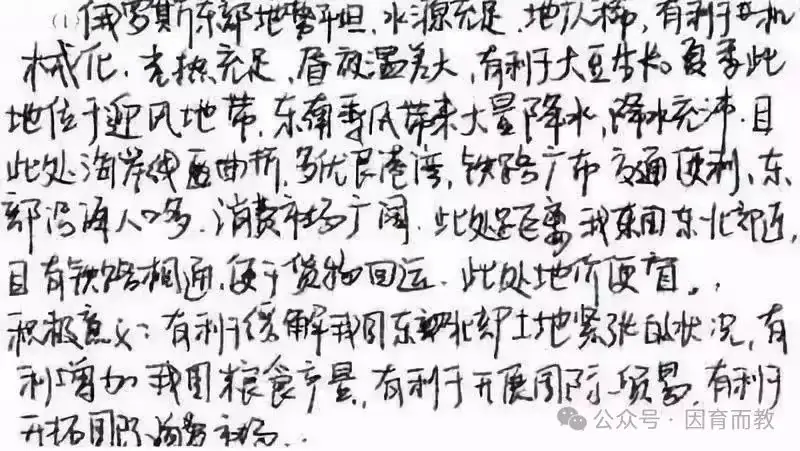 (1)俄罗斯东部地势平坦,水源充足,地广人稀,有利于机
械化,光热充足,昼夜温差大,有利于大豆生长。夏季此
地位于迎风地带,东南季风带来大量降水,降水充沛.且
此处海岸线曲折,多优良港湾,铁路广布,交通便利、东
部沿海人口多.消费市场广阔.此处距离我国东北部近,
且有铁路相通,便于货物回运.此处地价便宜。
积极意义:有利于缓解我国东北部土地紧张的状况,有
利增加我国粮食产量,有利于开展国际贸易,有利于
开拓国际消费市场..
公众号·因育而教